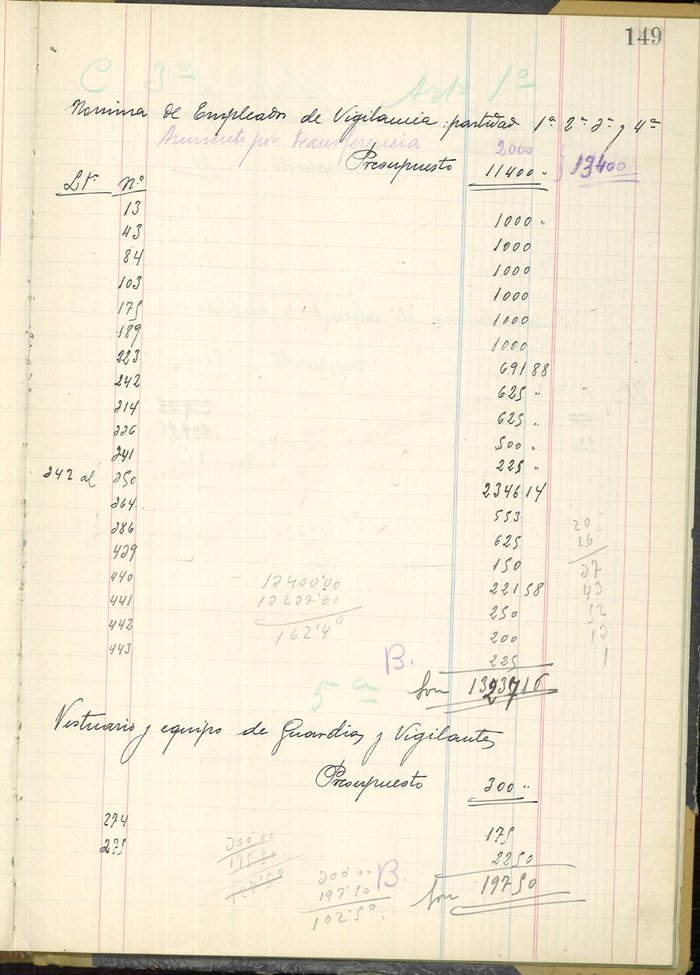 149
C 3º Artº 1º
Nomina de Empleados de Vigilancia: partidas 1ª 2ª 3ª y 4ª
Aumento por transferencia 2000
Presupuesto 11400 " } 13400
Lº. Nº
13 1000 "
43 1000
84 1000
103 1000
175 1000
189 1000
223 691 88
242 625 "
214 625 "
226 500 "
241 225 "
242 al 250 2346 14
264 553
286 625
429 150
440 2215 8
441 250
442 200
443 225
13400'00
13237'60
162'40
20
16
27
43
52
12
1
B. Son 13237 16
5ª
Vestuario y equipo de Guardias y Vigilantes
Presupuesto 300 "
274 175
275 22 50
200'00
175'00
300'00
197'50
102'50
B. Son 197 50